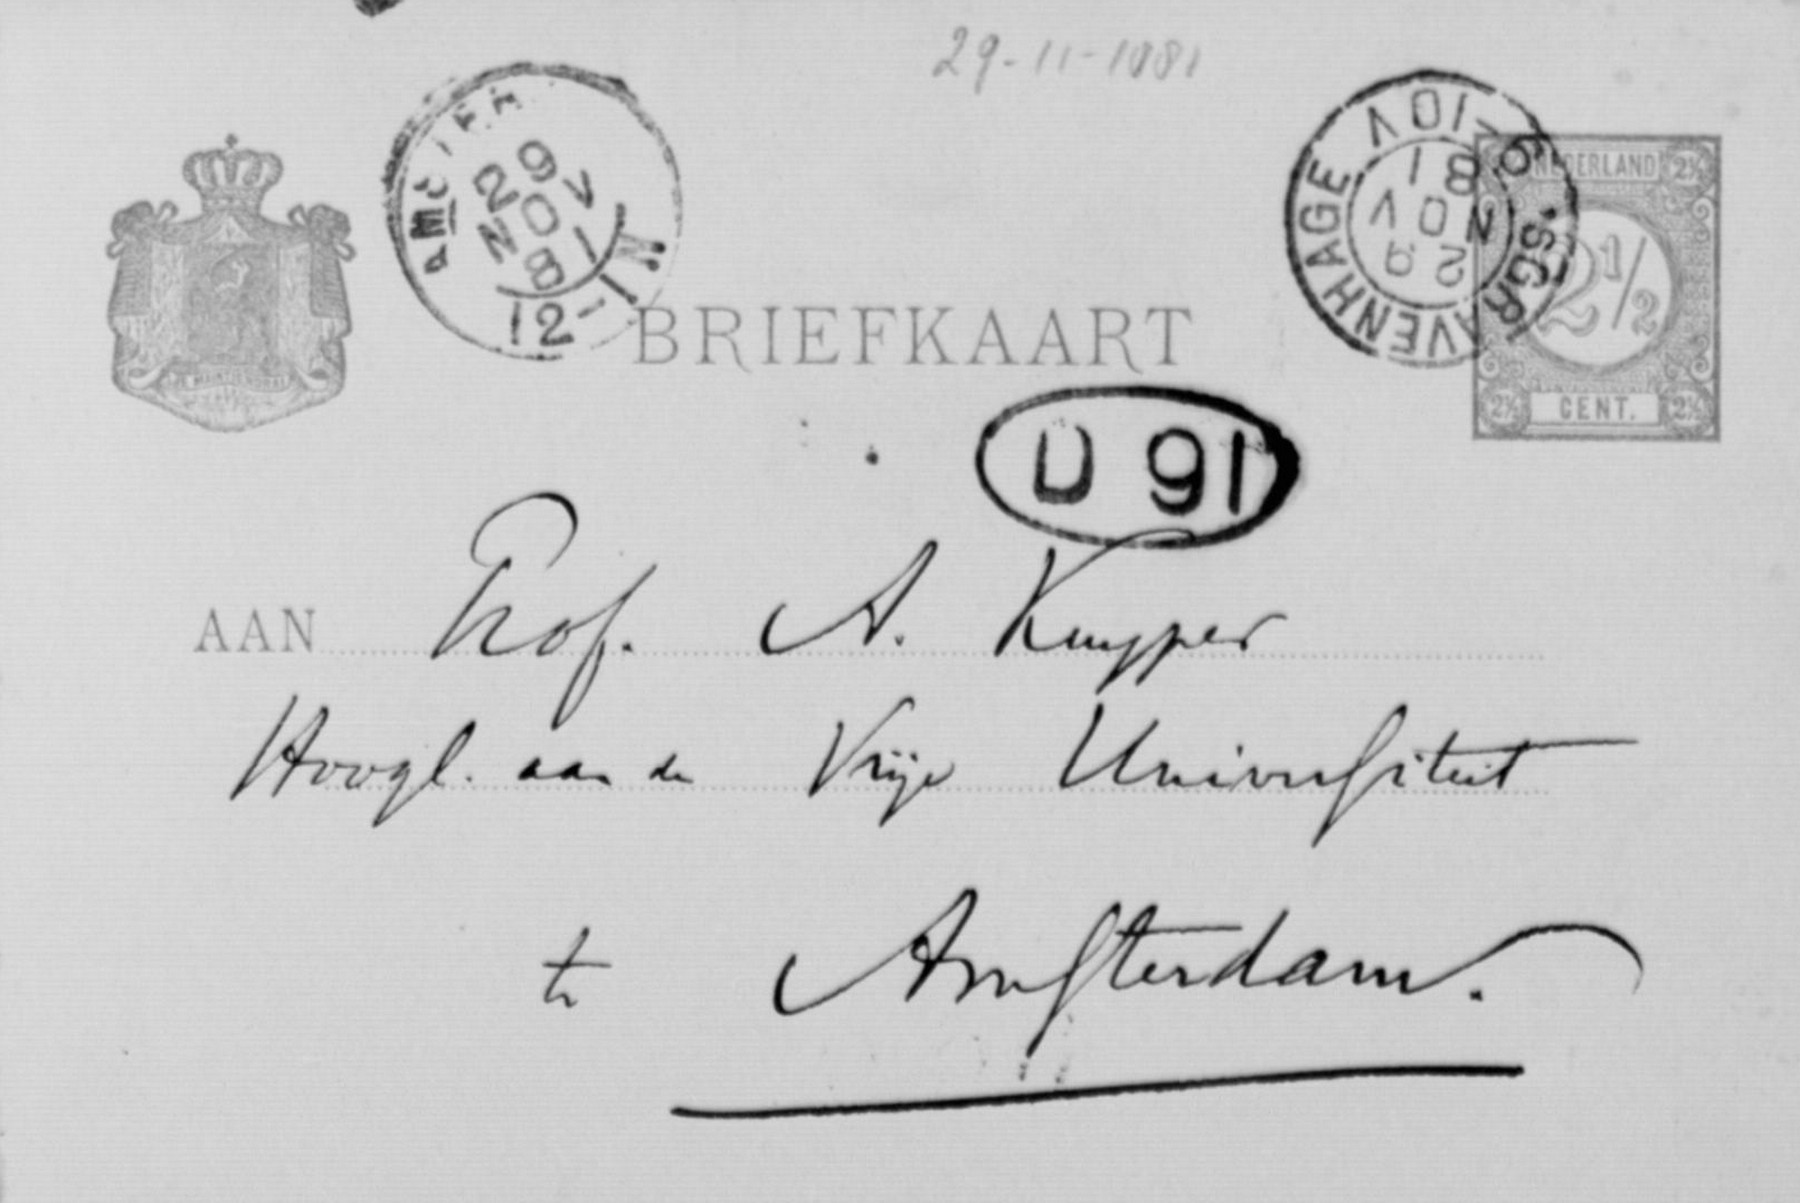 29-11-1881
AMSTER
29
NOV
81
12-1 N
'SGRAVENHAGE
9-10V
29
NOV
81
NEDERLAND
2½
2½
2½ CENT. 2½
BRIEFKAART
U 91
AAN Prof. A. Kuyper
Hoogl. aan de Vrije Universiteit
te Amsterdam.